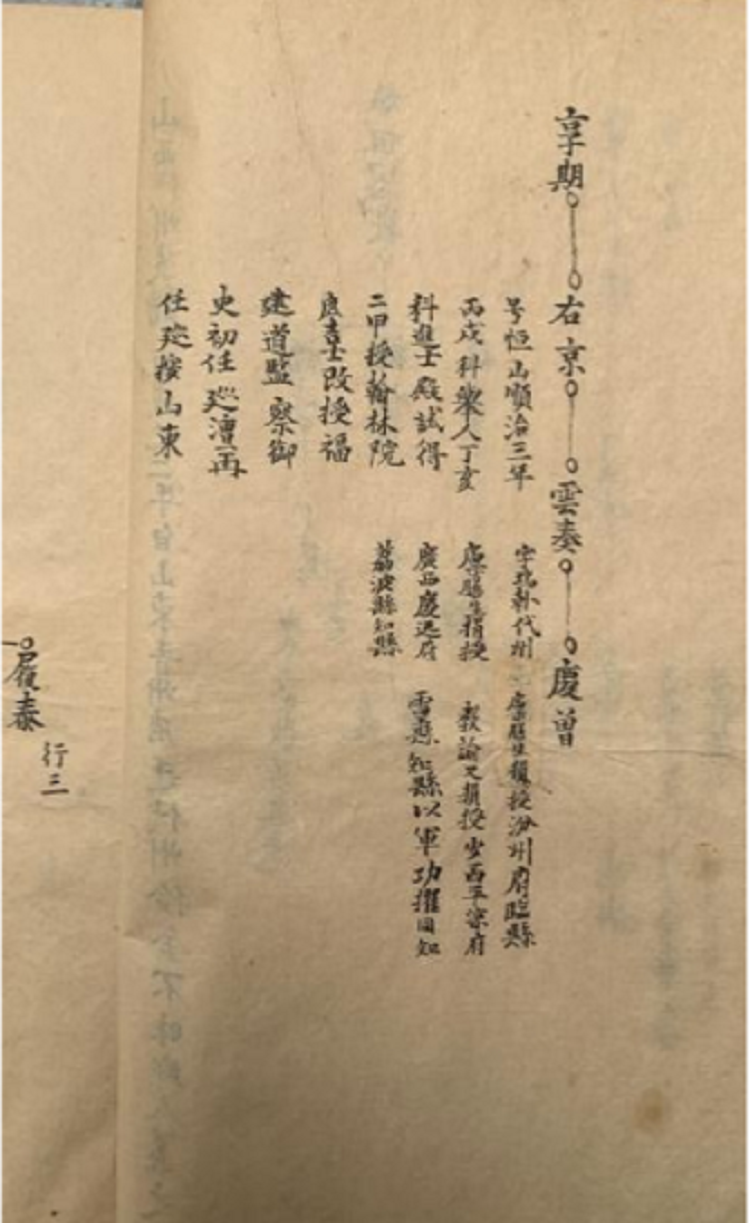 享期 右京 雲奏 慶曾
号恒山順治三年
丙戌科舉人丁亥
科進士殿試得
二甲授翰林院
庶吉士改授福
建道監察御
史初任廵漕再
任廵按山東
字 代州
廩膳生捐授
廣西慶远府
荔波縣知縣
廩膳生捐授汾州府臨縣
教諭又捐授 西平 府
縣知縣以軍功擢同知
履泰
行三